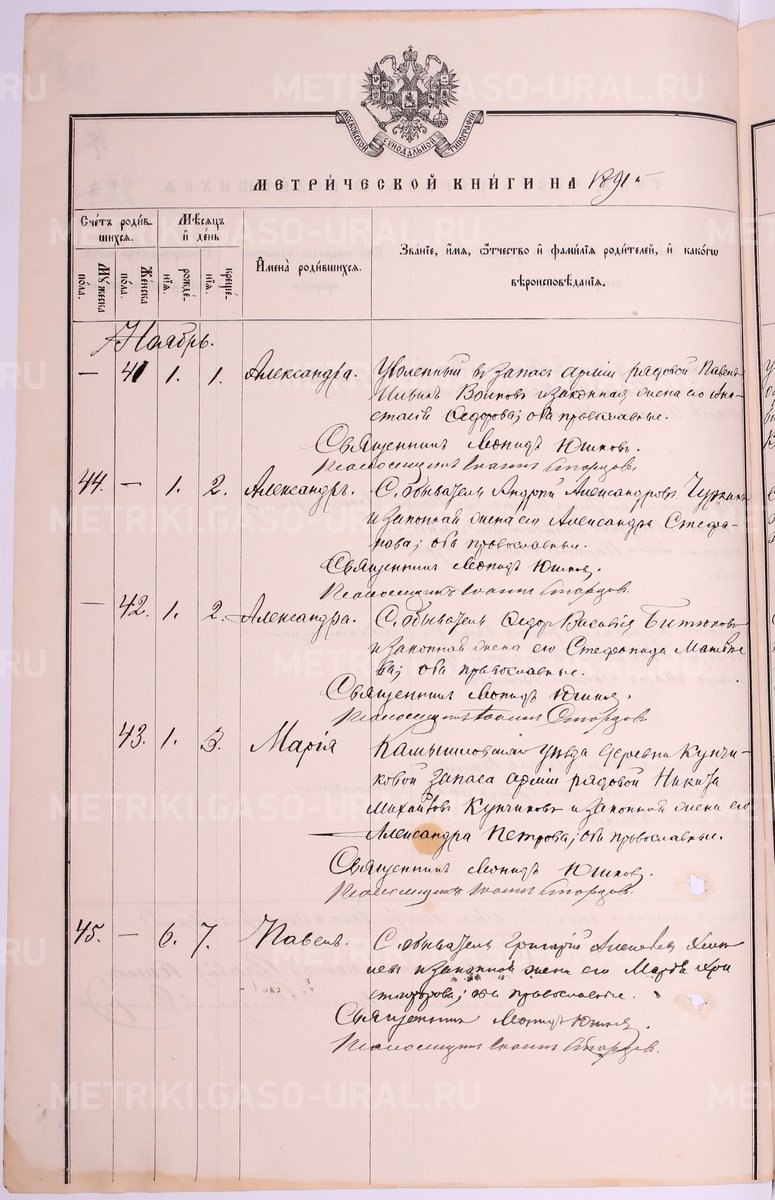 МОСКОВСКОЙ СѴНОДАЛЬНОЙ ТИПОГРАФІИ
МЕТРИ́ЧЕСКОЙ КНИ́ГИ НА 1891 г.
Сче́тъ роди́вшихся.
Мѣ́сяцъ и҆ де́нь
И҆мена̀ роди́вшихся.
Зва́нїе, и҆́мя, ѻ҆́тчество и҆ фами́лїя роди́телей, и҆ како́гѡ
вѣроисповѣ́данїя.
Мꙋ́жеска по́ла.
Же́нска по́ла.
рожде́нїѧ.
креще́нїѧ.
Ноябрь.
— 41 1. 1. Александра. Уволенный въ запасъ арміи рядовой Павелъ
Ильинъ Волковъ и законная жена его Ана-
стасія Ѳедорова; оба православные.
Священникъ Леонидъ Юшковъ.
Псаломщикъ Іоаннъ Старцовъ.
44. — 1. 2. Александръ. С. обыватель Андрей Александровъ
и законная жена его Александра Стефа-
нова; оба православные.
Священникъ Леонидъ Юшковъ.
Псаломщикъ Іоаннъ Старцовъ.
— 42. 1. 2. Александра. С. обыватель Ѳедоръ Васильевъ Битюковъ
и законная жена его Стефанида Матвѣе-
ва; оба православные.
Священникъ Леонидъ Юшковъ.
Псаломщикъ Іоаннъ Старцовъ.
43. 1. 3. Марія Камышловскаго уѣзда деревни Кунчи-
ковой запаса арміи рядовой Никита
Михайловъ Кунчиковъ и законная жена его
Александра Петрова; оба православные.
Священникъ Леонидъ Юшковъ.
Псаломщикъ Іоаннъ Старцовъ.
45. — 6. 7. Павелъ. С. обыватель Григорій Алексѣевъ
и законная жена его Марѳа Хри
стофорова; оба православные.
Священникъ Леонидъ Юшковъ.
Псаломщикъ Іоаннъ Старцовъ.
METRIKI.GASO-URAL.RU